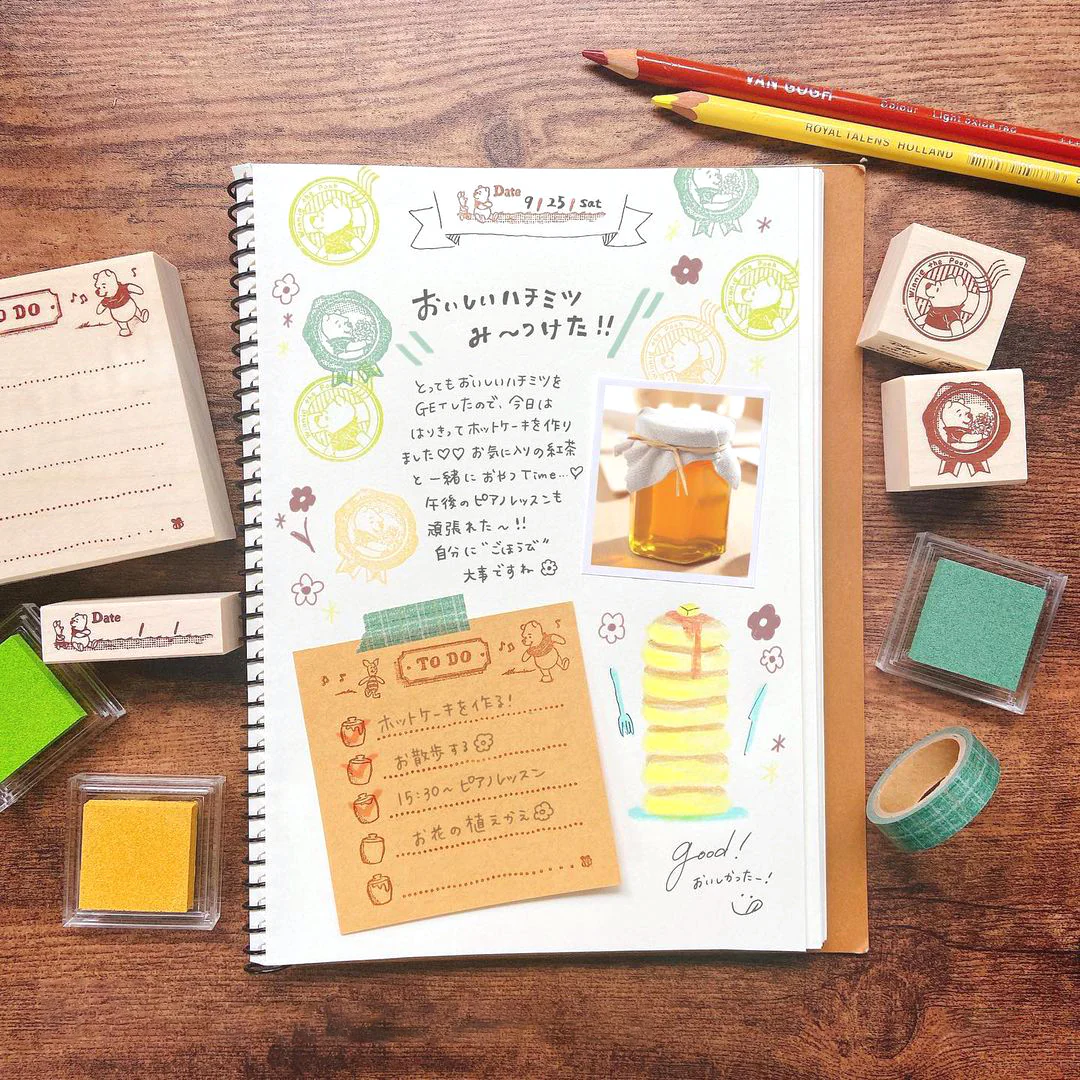 VAN GOGH Colour Light oxide red
ROYAL TALENS HOLLAND
Winnie the Pooh
Date
9/25/sat
Winnie the Pooh
Winnie the Pooh
Winnie the Pooh
おいしいハチミツ
み〜つけた!!
とってもおいしいハチミツを
GETしたので、今日は
はりきってホットケーキを作り
ました♡♡ お気に入りの紅茶
と一緒におやつTime...♡
午後のピアノレッスンも
頑張れた〜!!
自分に"ごほうび"
大事ですね
TO DO
ホットケーキを作る!
お散歩する
15:30〜ピアノレッスン
お花の植えかえ
good!
おいしかったー!
TO DO
Date
Winnie the Pooh